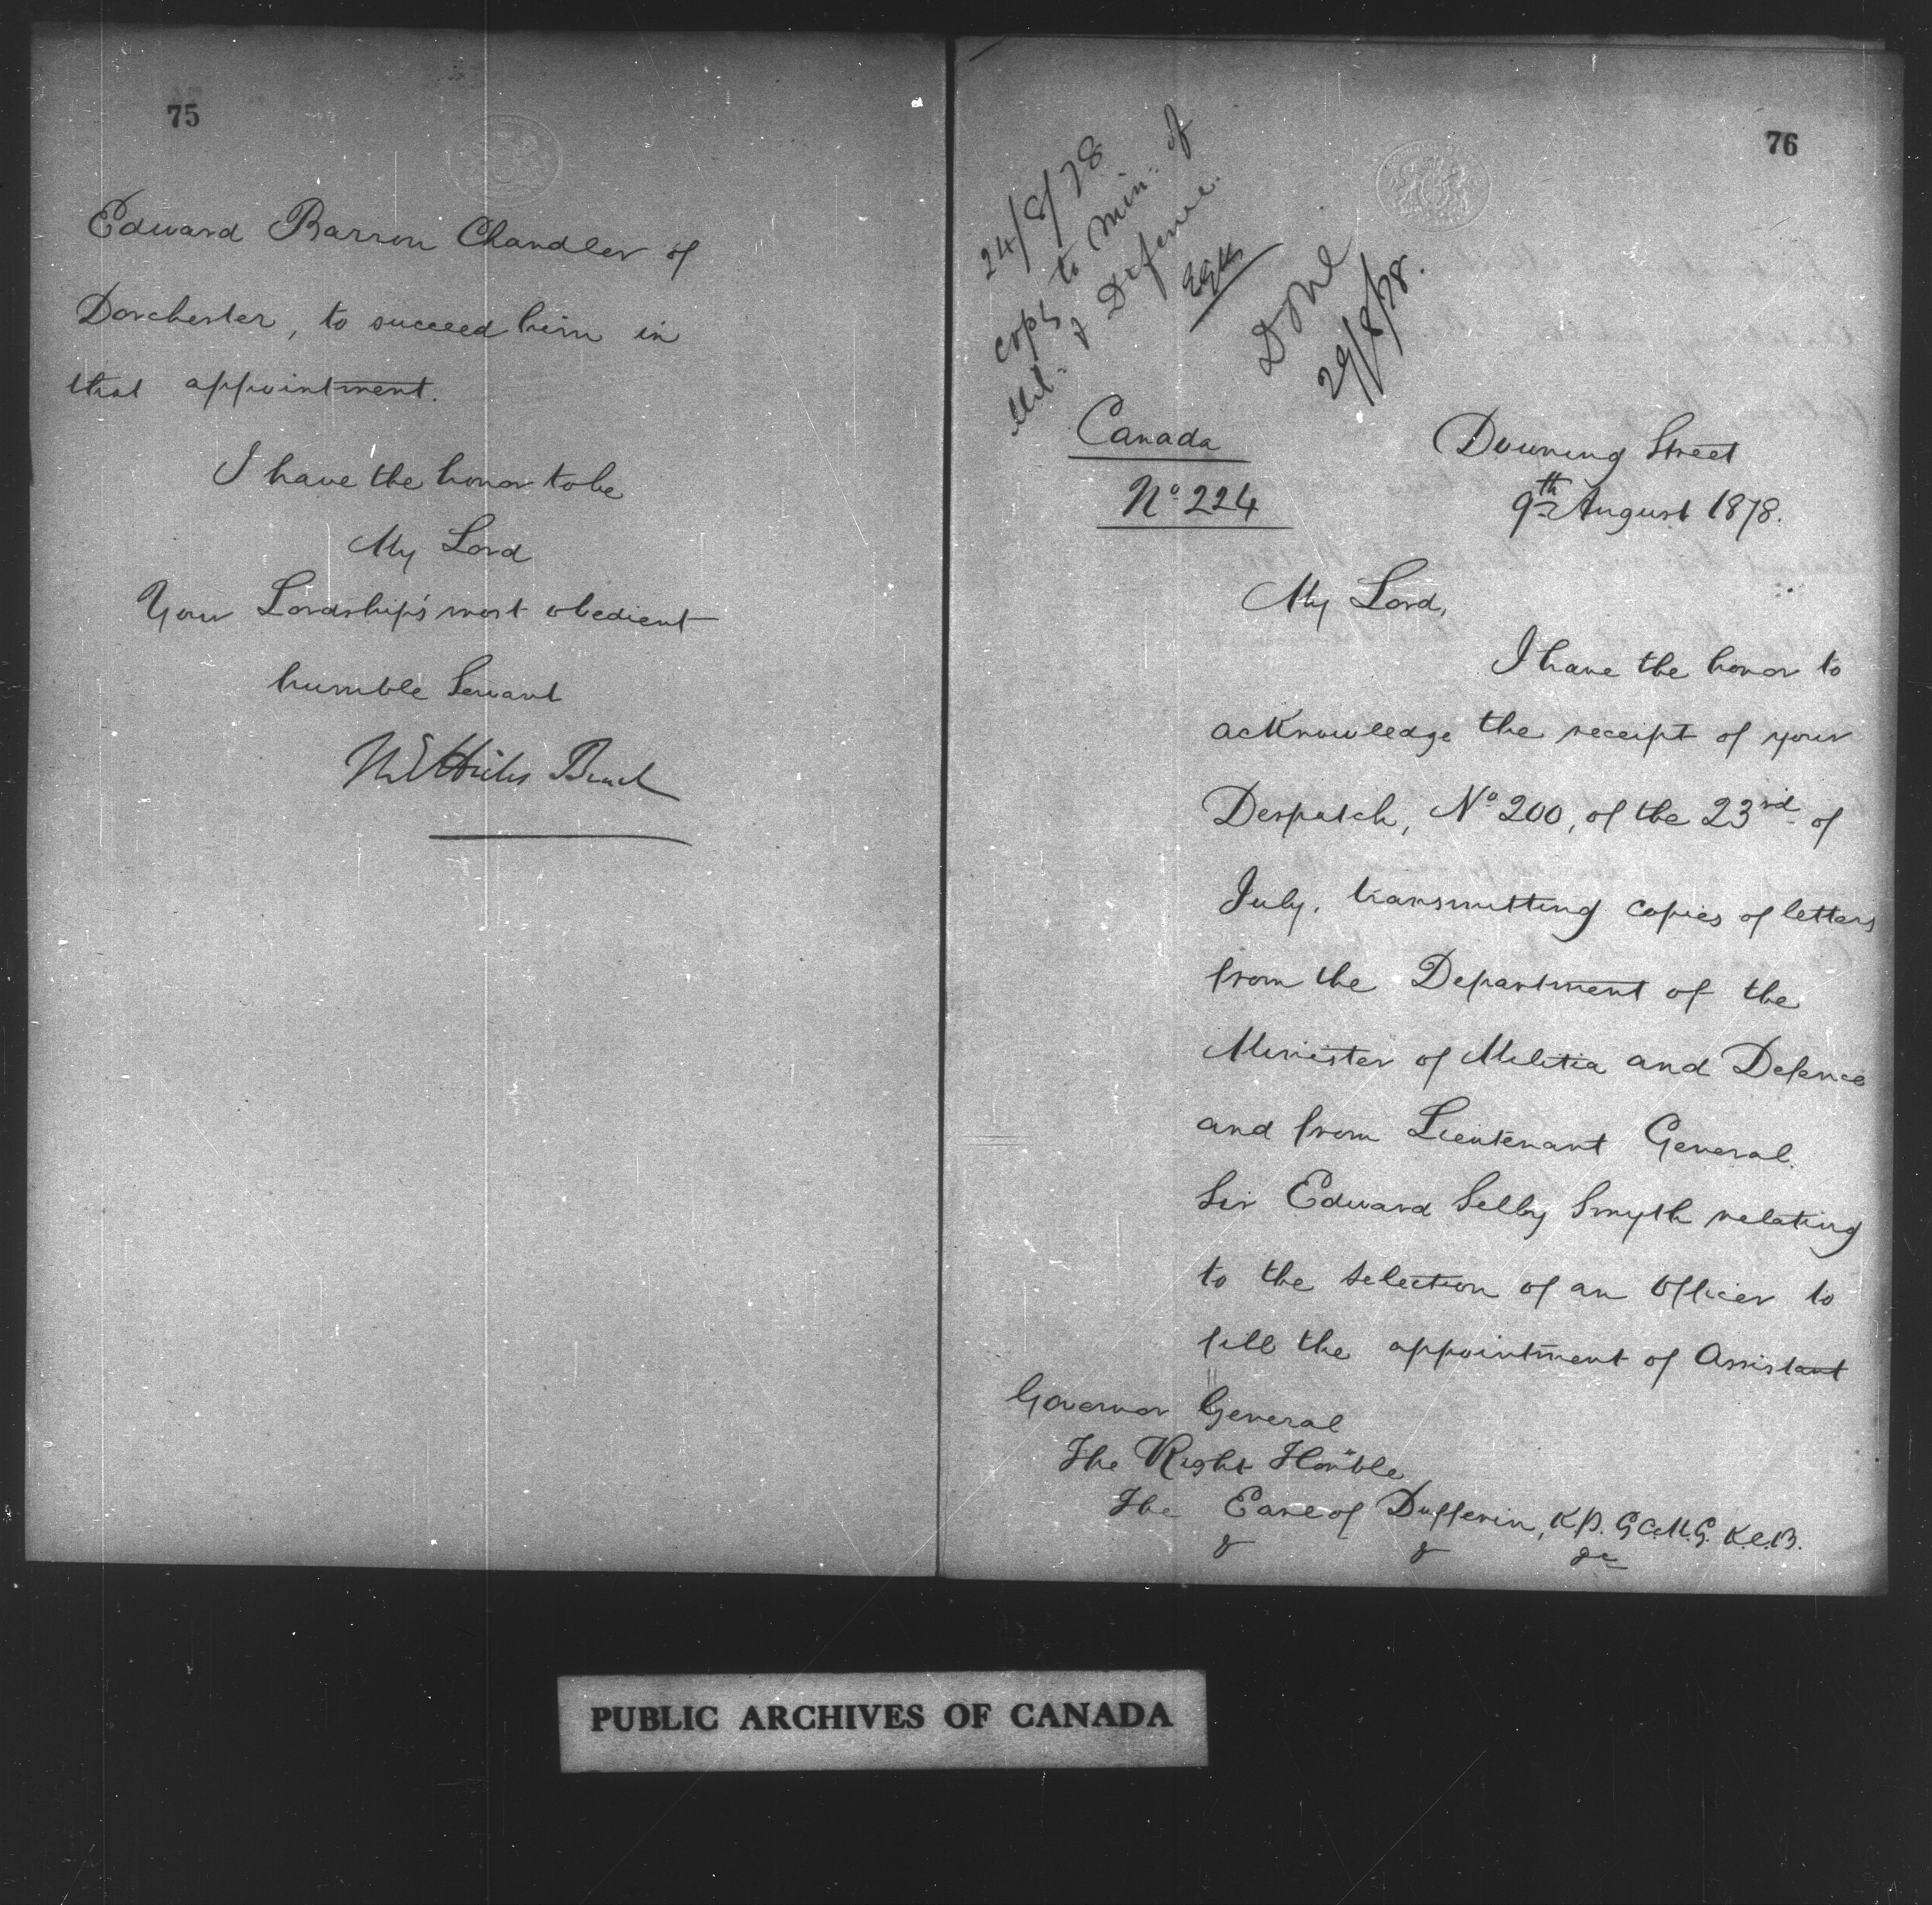 75
Edward Barron Chandler of
Dorchester, to succeed him in
that appointment.
I have the honor to be
My Lord
Your Lordship's most obedient
humble Servant
M E Hicks Beach
76
24/8/78
Copy to Min: of
Mil: & Defence.
Done
29/8/78.
Canada
No 224
Downing Street
9th August 1878.
My Lord,
I have the honor to
acknowledge the receipt of your
Despatch, No 200, of the 23rd of
July, transmitting copies of letters
from the Department of the
Minister of Militia and Defence
and from Lieutenant General
Sir Edward Selby Smyth relating
to the selection of an Officer to
fill the appointment of Assistant
Governor General
The Right Honble
The Earl of Dufferin, K.P. G.C.M.G. K.C.B.
& & &c
PUBLIC ARCHIVES OF CANADA